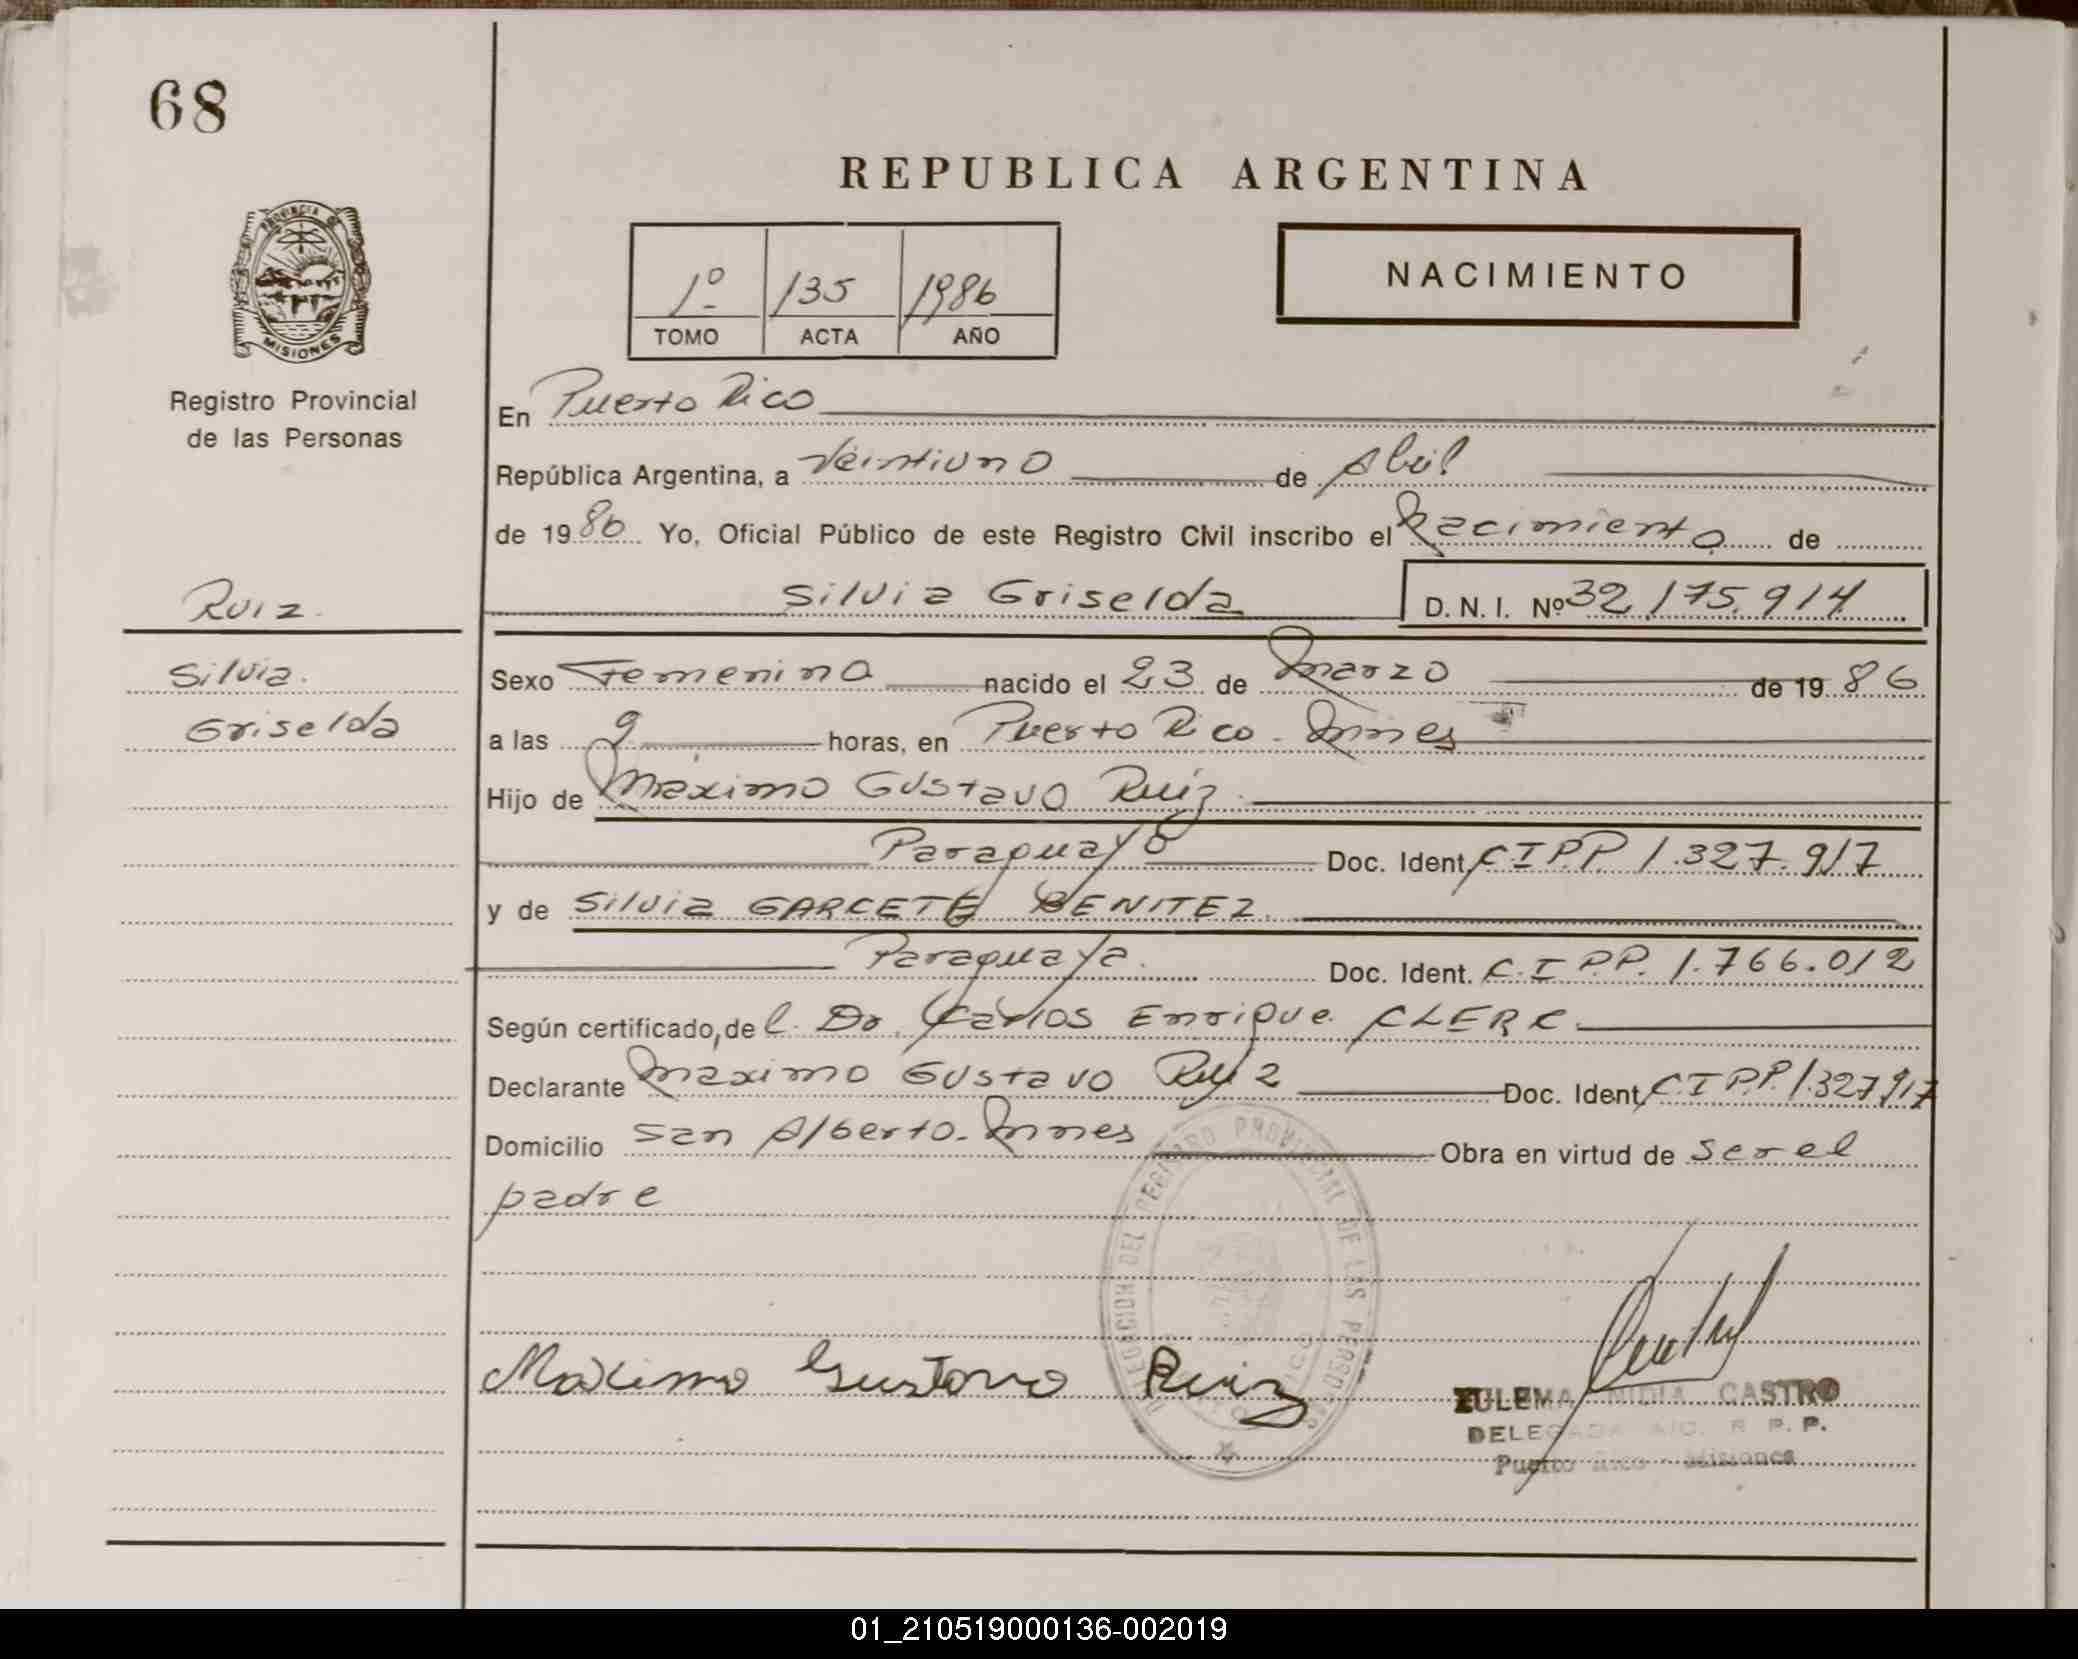 68
REPUBLICA ARGENTINA
PROVINCIA DE
MISIONES
1º 135 1986
TOMO ACTA AÑO
NACIMIENTO
Registro Provincial
de las Personas
En Puerto Rico
República Argentina, a Veintiuno de Abril
de 1986 Yo, Oficial Público de este Registro Civil inscribo el Nacimiento de
Silvia Griselda D.N.I. Nº 32.175.914
Ruiz.
Silvia.
Griselda
Sexo Femenino nacido el 23 de Marzo de 1986
a las 9 horas, en Puerto Rico - Mnes
Hijo de Máximo Gustavo Ruíz
Paraguayo Doc. Ident. C.I.P.P. 1.327.917
y de Silvia GARCETE BENITEZ.
Paraguaya. Doc. Ident. C.I.P.P. 1.766.012
Según certificado, del. Dr. Carlos Enrique CLERC.
Declarante Maximo Gustavo Ruiz Doc. Ident. C.I.P.P. 1.327.917
Domicilio San Alberto - Mnes Obra en virtud de ser el
padre
DELEGACION DEL REGISTRO PROVINCIAL DE LAS PERSONAS
PUERTO RICO
Maximo Gustavo Ruiz
ZULEMA NIDIA CASTRO
DELEGADA A/C. R.P.P.
Puerto Rico - Misiones
01_210519000136-002019